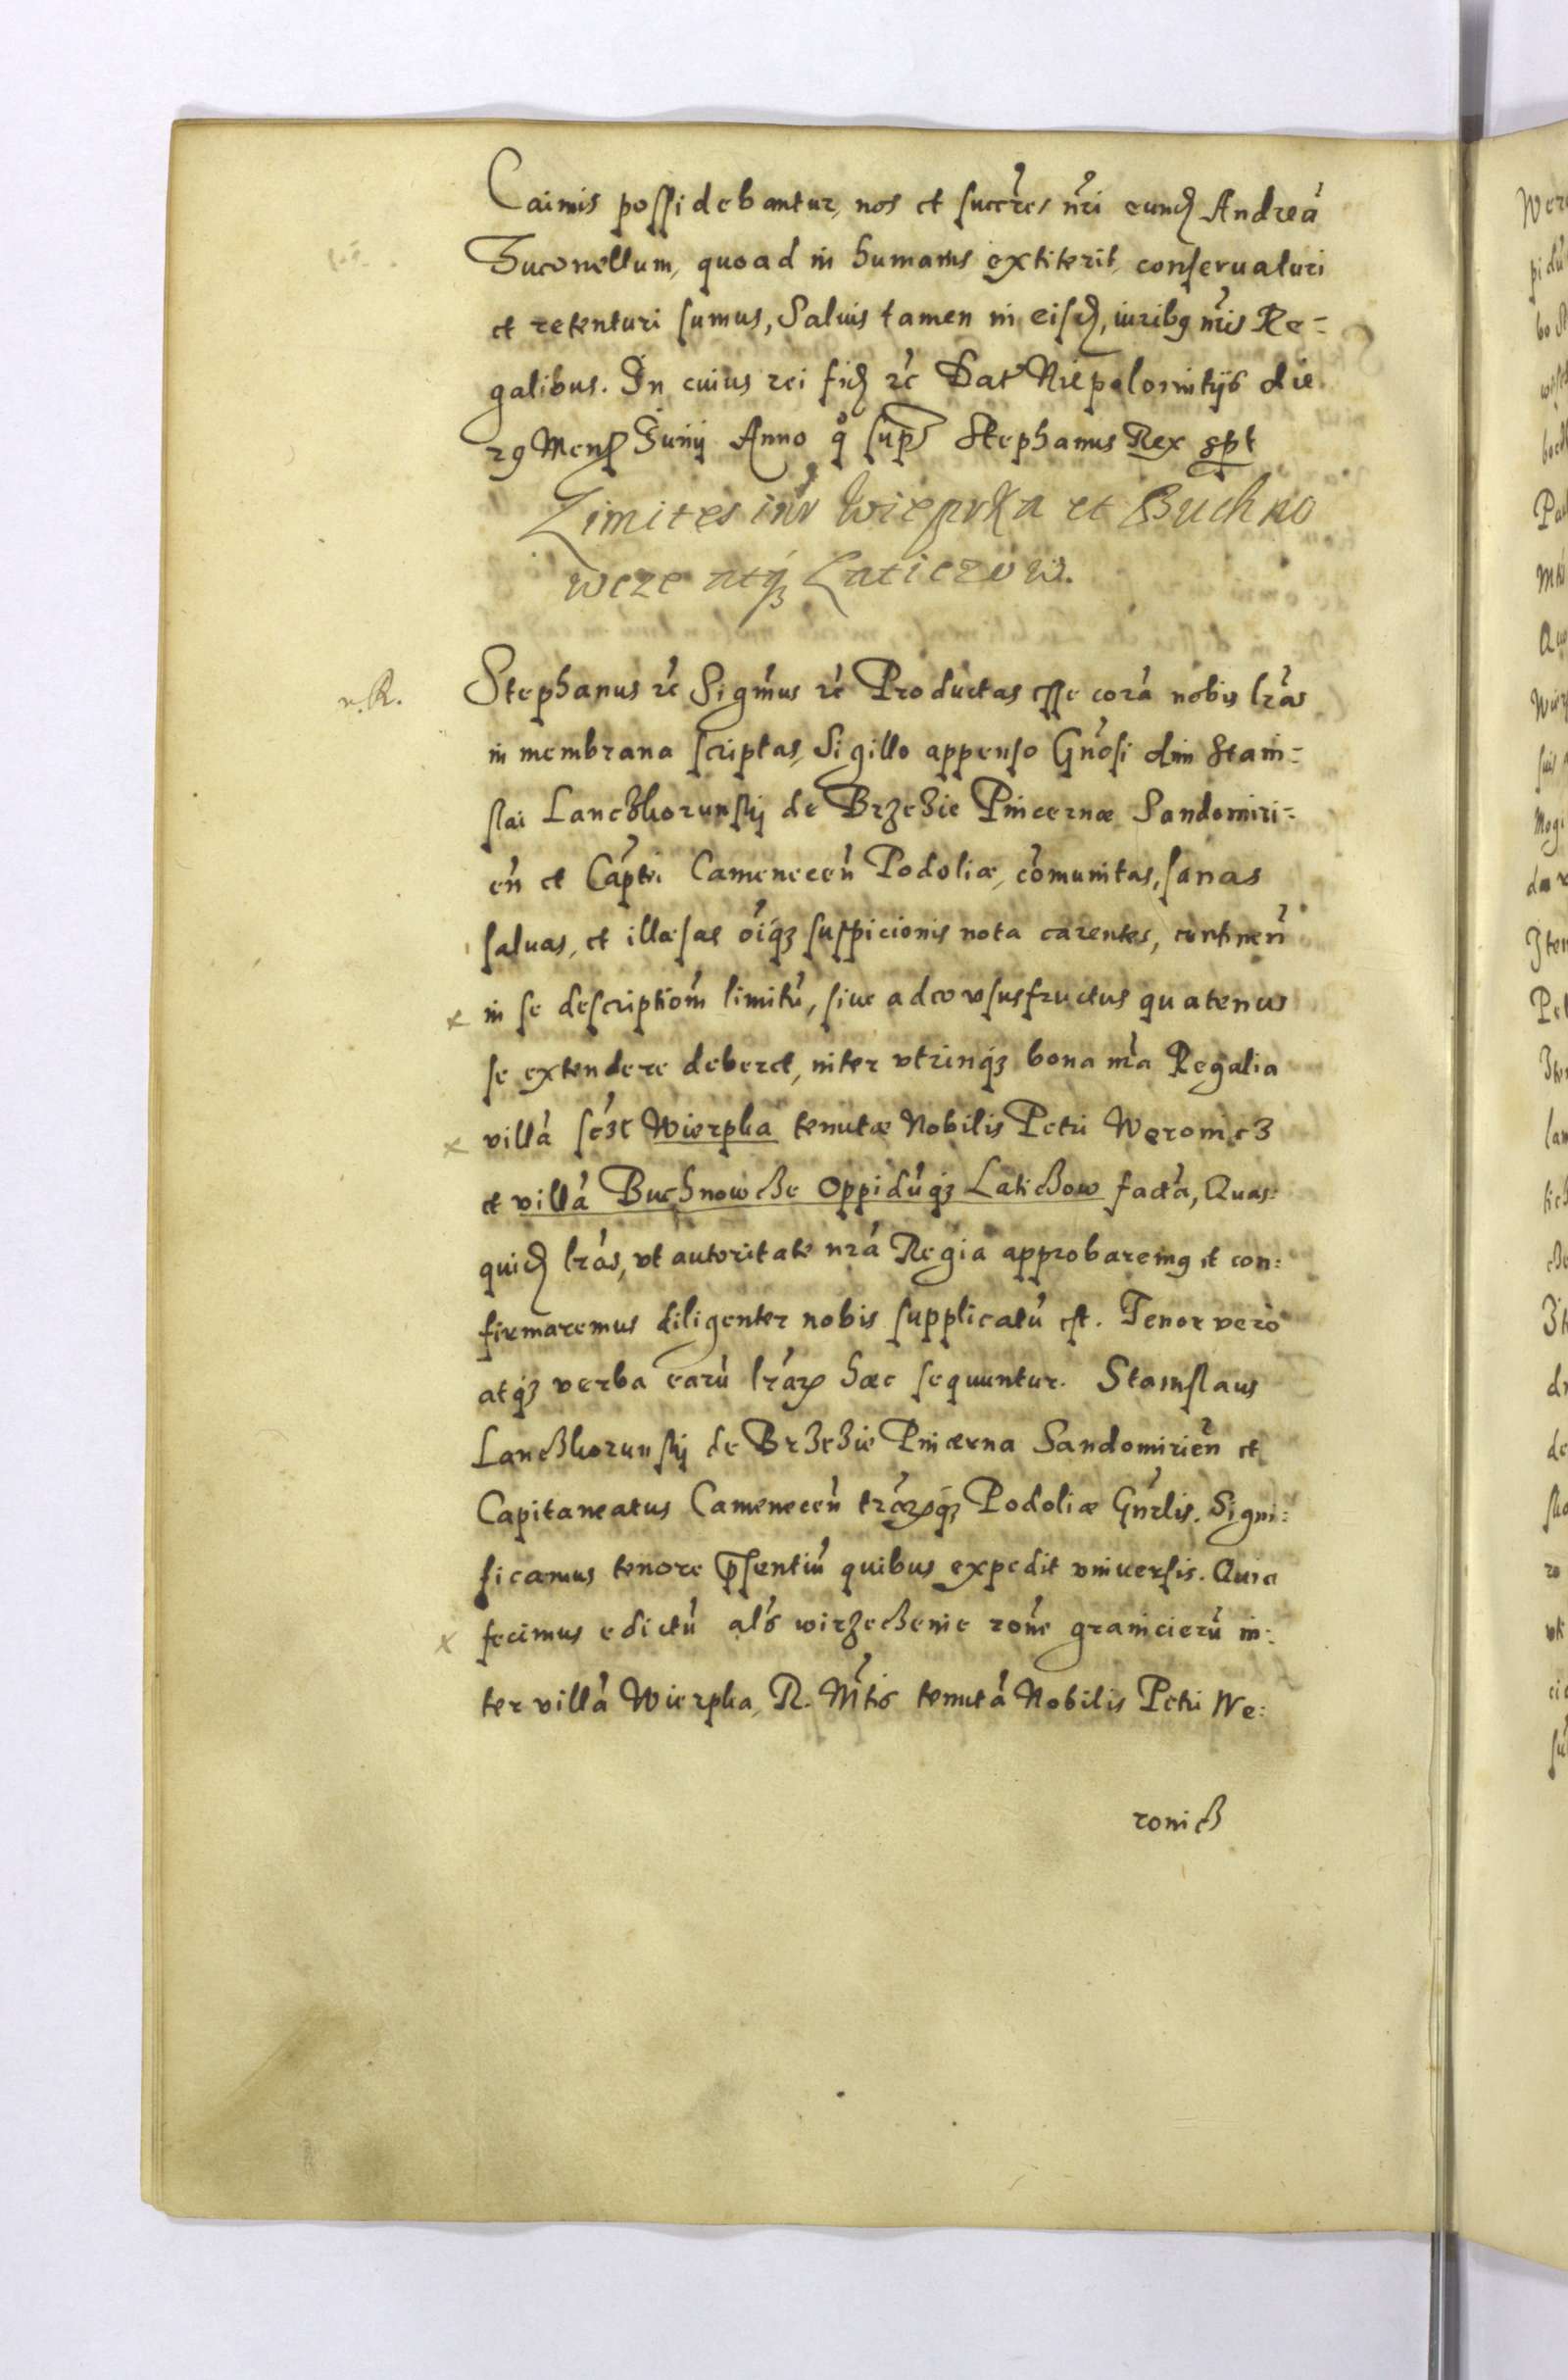 Caimis possidebantur, nos et succ̃res nr̃i eund Andreã
Buconellum, quoad in humanis extiterit conservaturi
et retenturi sumus, Salvis tamen in eisd, iuribq nr̃is Re=
galibus. In cuius rei fid rc̃ Dat Niepolomitijs die
29 Mens Junij Anno q̊ sup̃s Stephanus Rex spt
Limites int̃ Wiepr̃ka et Buchno
weze atq̃ Laticzow.
v. R. Stephanus rc̃ Sigm̃us rc̃ Productas esse corã nobis lrãs
in membrana scriptas, Sigillo appenso Gñosi dni Stani=
slai Lanczkorunskij de Brzezie Pincernæ Sandomiri=
eñ et Cap̃tei Cameneceñ Podoliæ, cõmunitas, sanas
salvas, et illæsas oĩqz suspicionis nota carentes, continẽn
x in se descriptioñm limitũ, sive adeo usufructus quatenus
se extendere deberet, inter utrinqz bona nr̃a Regalia
x villã Wierpka tenutæ Nobilis Petri Weronicz
et villã Buchnowcze Oppidũqz Laticzow factã, Quas=
quid lrãs, ut autoritate nrã Regia approbaremq et con=
firmaremus diligenter nobis supplicatũ est. Tenor vero
atqz verba earũ lrãr hæc sequuntur. Stanislaus
Lanczkorunskij de Brzezie Pincerna Sandomirieñ et
Capitaneatus Cameneceñ trãrqz Podoliæ Gñrlis. Signi=
ficamus tenore p̃sentiũ quibus expedit universis. Quia
x fecimus edictũ al̃s wirzeczenie rõne granicierũ in=
ter villã Wierpka, R. Mtis tenutã Nobilis Petri We=
ronicz